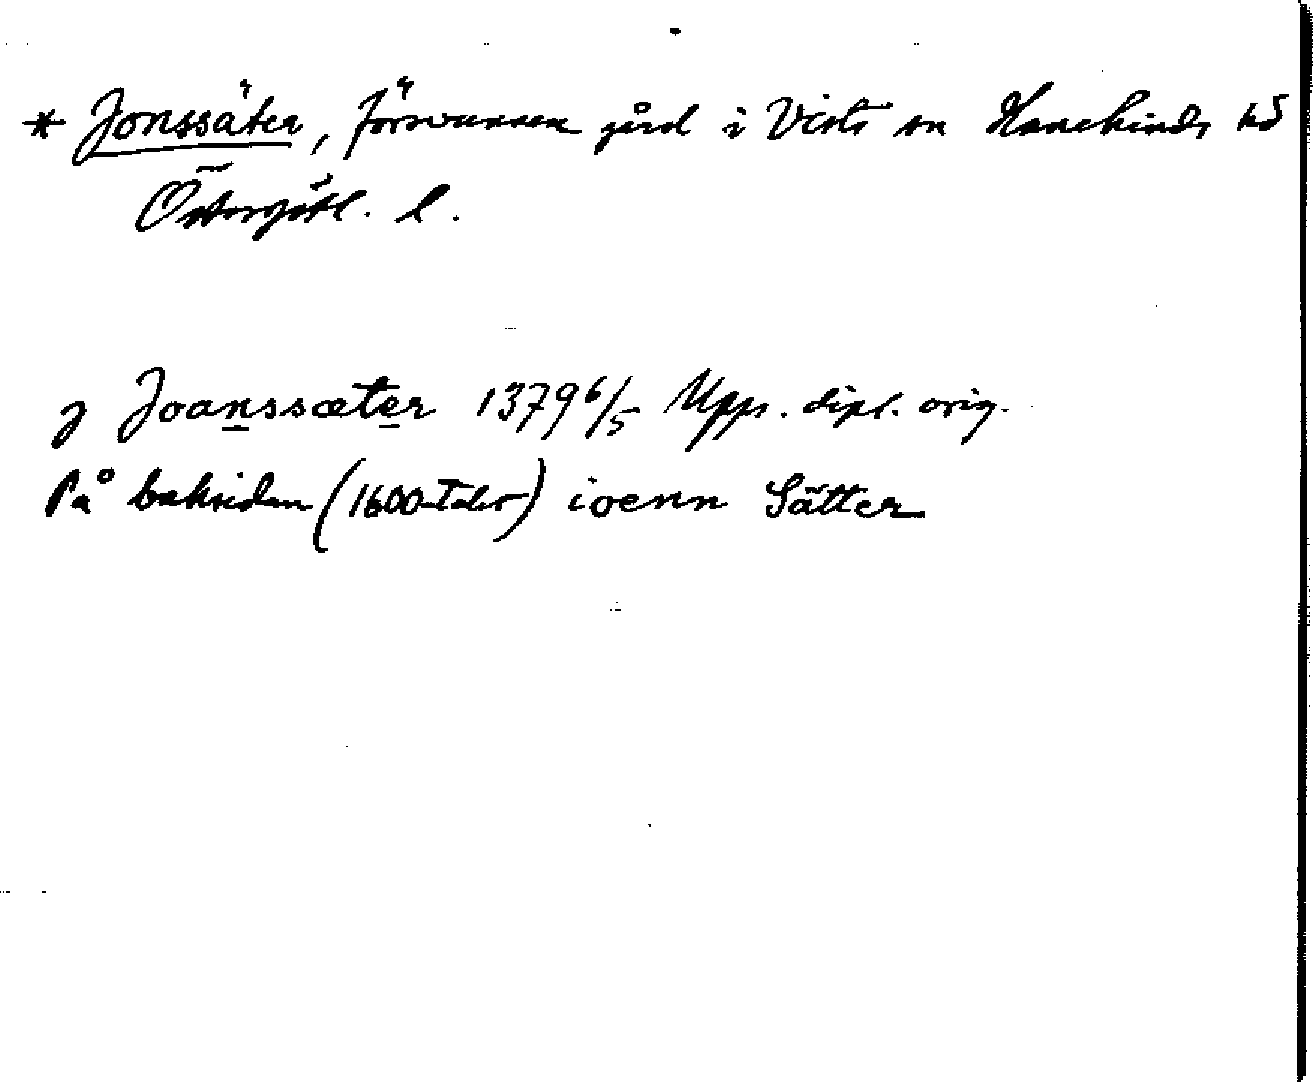 * Jonssäter, försvunnen gård i Vists sn Hanekinds hd
Östergötl. l.
j Joanssæter 1379 6/5 Upps. dipl. orig.
På baksidan (1600-talet) ioenn Sätter